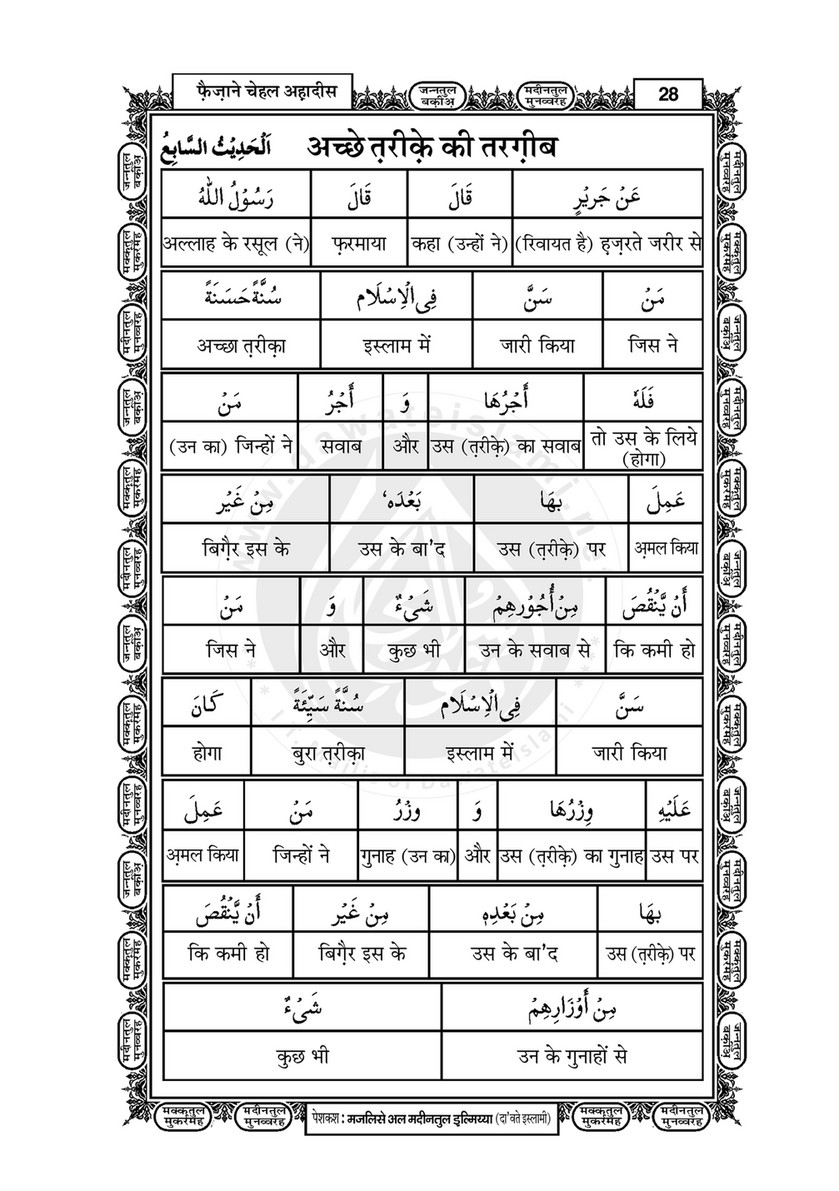 फ़ैज़ाने चेहल अह़ादीस
जन्नतुल बक़ीअ़
मदीनतुल मुनव्वरह
28
اَلْحَدِيْثُ السَّابِعُ अच्छे त़रीक़े की तरग़ीब
عَنْ جَرِيْرٍ قَالَ قَالَ رَسُوْلُ اللّٰهِ
अल्लाह के रसूल (ने) फ़रमाया कहा (उन्हों ने) (रिवायत है) ह़ज़रते जरीर से
مَنْ سَنَّ فِي الْاِسْلَامِ سُنَّةً حَسَنَةً
अच्छा त़रीक़ा इस्लाम में जारी किया जिस ने
فَلَهٗ أَجْرُهَا وَ أَجْرُ مَنْ
(उन का) जिन्हों ने सवाब और उस (त़रीक़े) का सवाब तो उस के लिये (होगा)
عَمِلَ بِهَا بَعْدَهٗ مِنْ غَيْرِ
बिग़ैर इस के उस के बा'द उस (त़रीक़े) पर अ़मल किया
أَنْ يَّنْقُصَ مِنْ أُجُوْرِهِمْ شَيْءٌ وَ مَنْ
जिस ने और कुछ भी उन के सवाब से कि कमी हो
سَنَّ فِي الْاِسْلَامِ سُنَّةً سَيِّئَةً كَانَ
होगा बुरा त़रीक़ा इस्लाम में जारी किया
عَلَيْهِ وِزْرُهَا وَ وِزْرُ مَنْ عَمِلَ
अ़मल किया जिन्हों ने गुनाह (उन का) और उस (त़रीक़े) का गुनाह उस पर
بِهَا مِنْ بَعْدِهٖ مِنْ غَيْرِ أَنْ يَّنْقُصَ
कि कमी हो बिग़ैर इस के उस के बा'द उस (त़रीक़े) पर
مِنْ أَوْزَارِهِمْ شَيْءٌ
कुछ भी उन के गुनाहों से
मक्कतुल मुकर्रमह
मदीनतुल मुनव्वरह
पेशकश : मजलिसे अल मदीनतुल इ़ल्मिय्या (दा'वते इस्लामी)
मक्कतुल मुकर्रमह
मदीनतुल मुनव्वरह